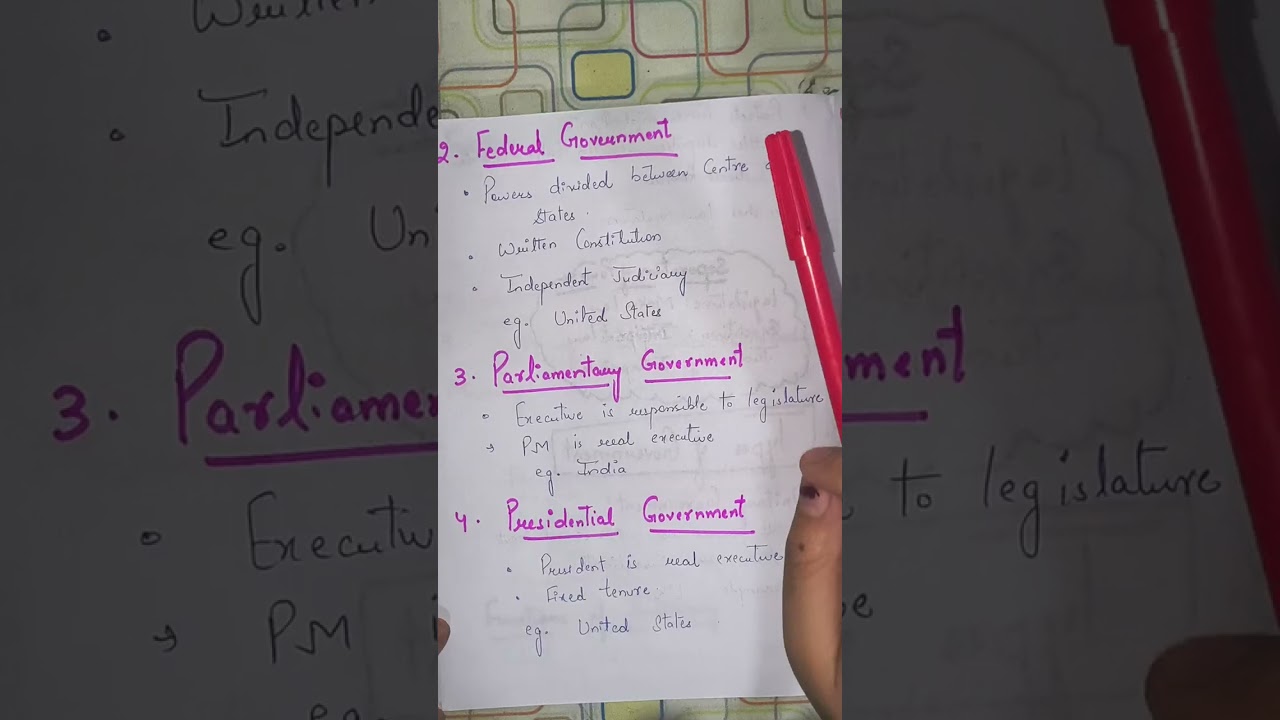 2. Federal Government
• Powers divided between Centre
States.
• Written Constitution
• Independent Judiciary
eg. United States
3. Parliamentary Government
• Executive is responsible to legislature
→ PM is real executive
eg. India
4. Presidential Government
• President is real executive
• Fixed tenure.
eg. United States